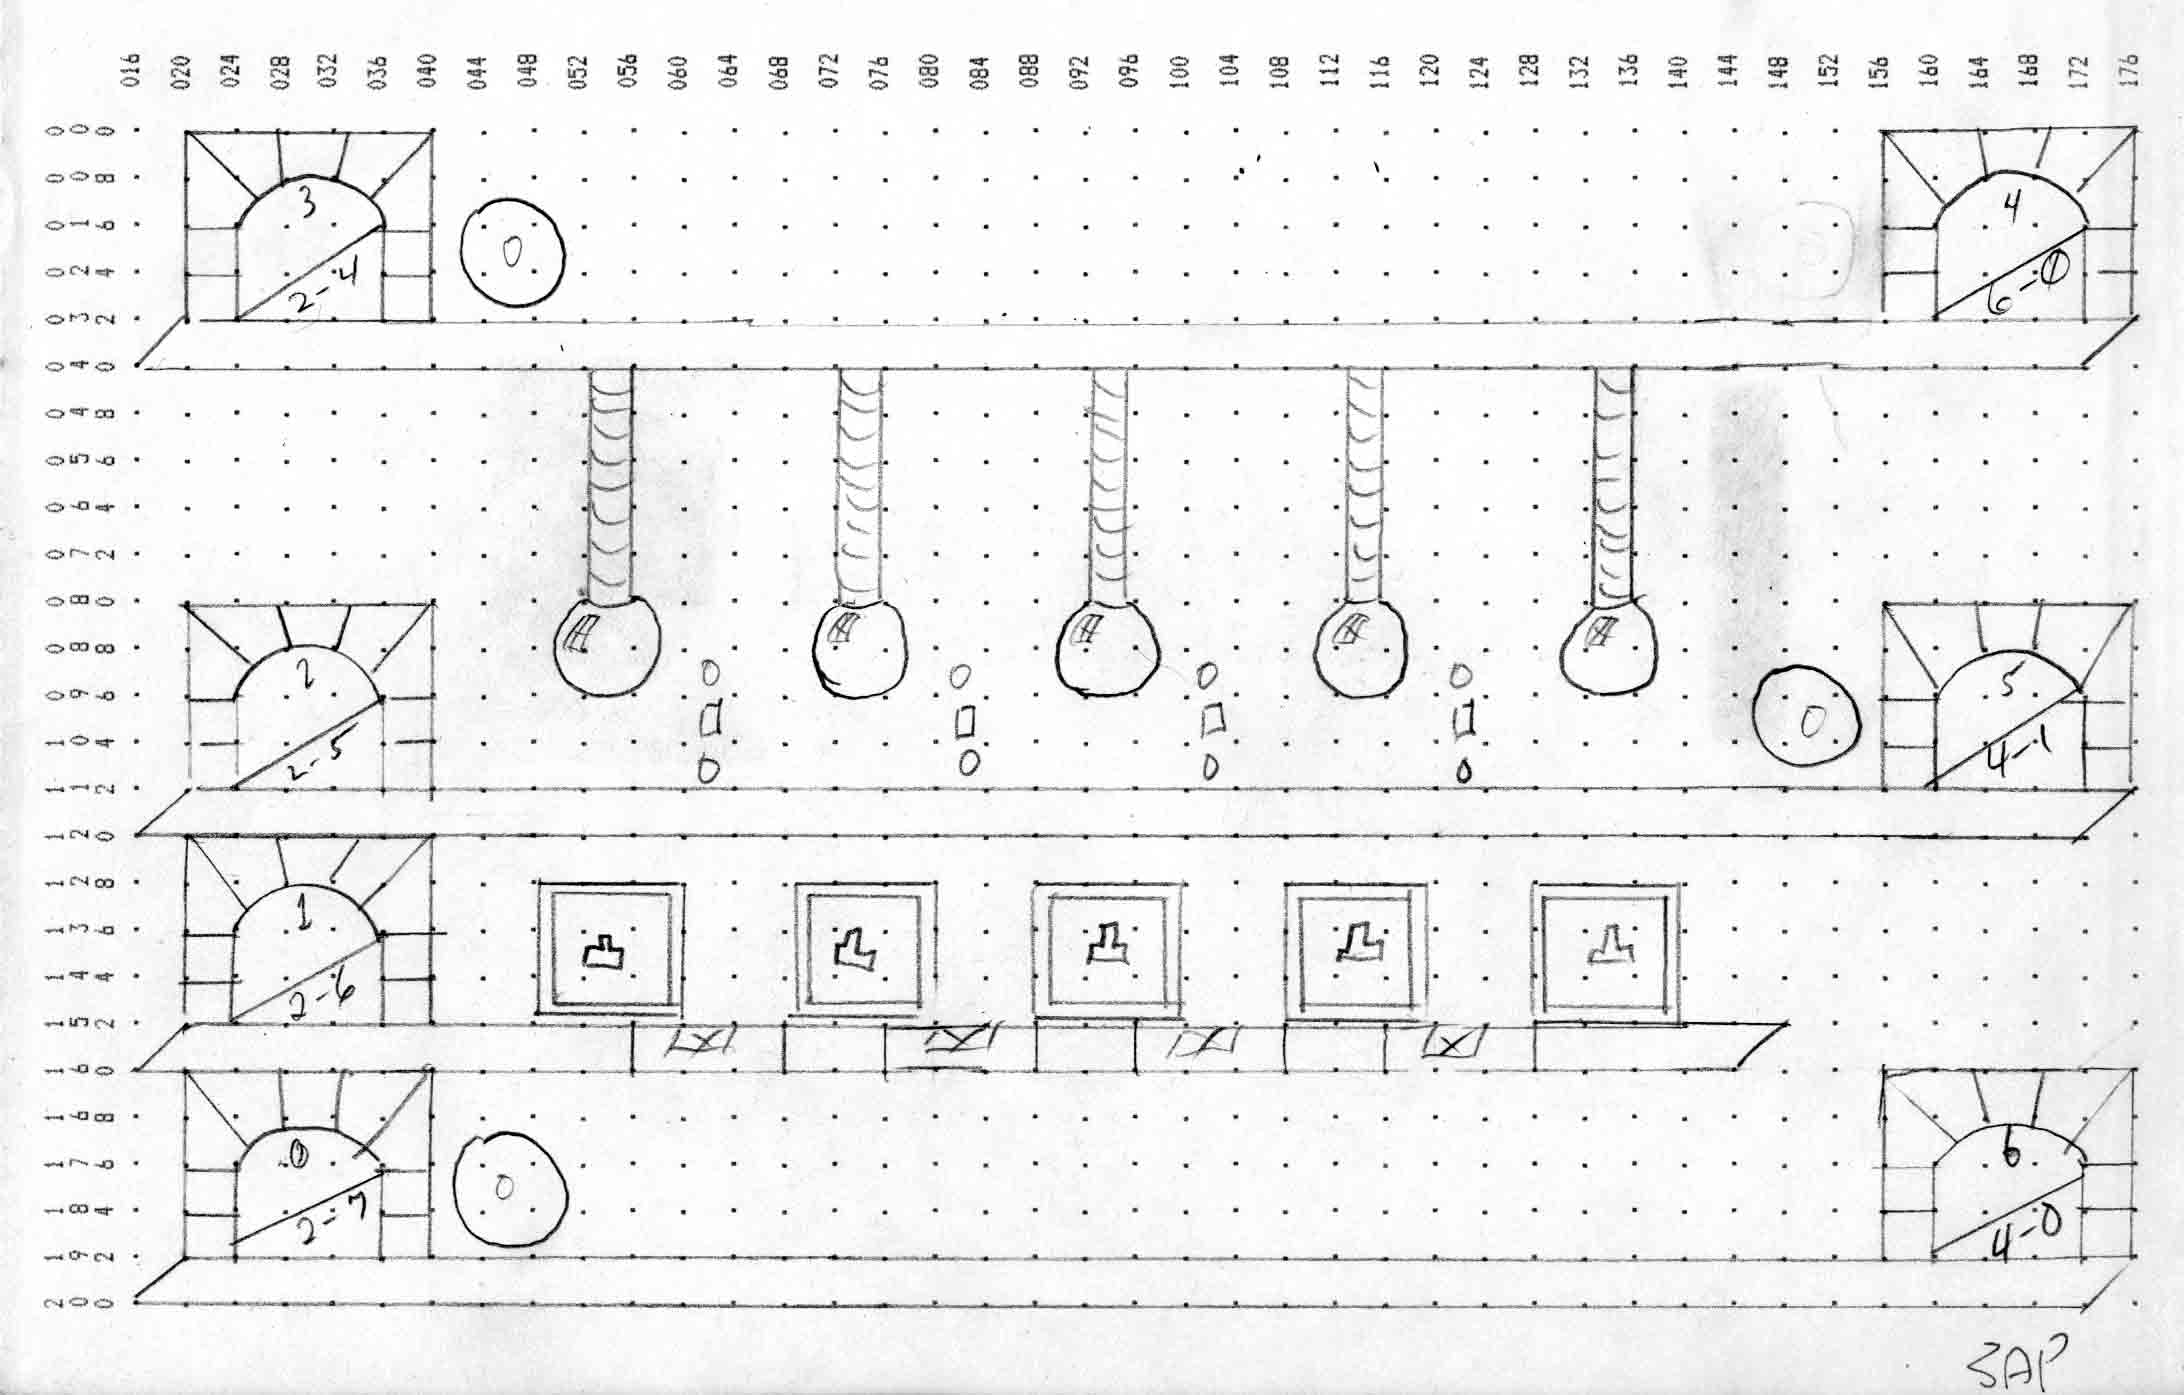 016 020 024 028 032 036 040 044 048 052 056 060 064 068 072 076 080 084 088 092 096 100 104 108 112 116 120 124 128 132 136 140 144 148 152 156 160 164 168 172 176
000
008
016
024
032
040
048
056
064
072
080
088
096
104
112
120
128
136
144
152
160
168
176
184
192
200
3
2-4
0
4
6-0
2
2-5
0
5
4-1
1
2-6
0
2-7
0
6
4-0
3AP